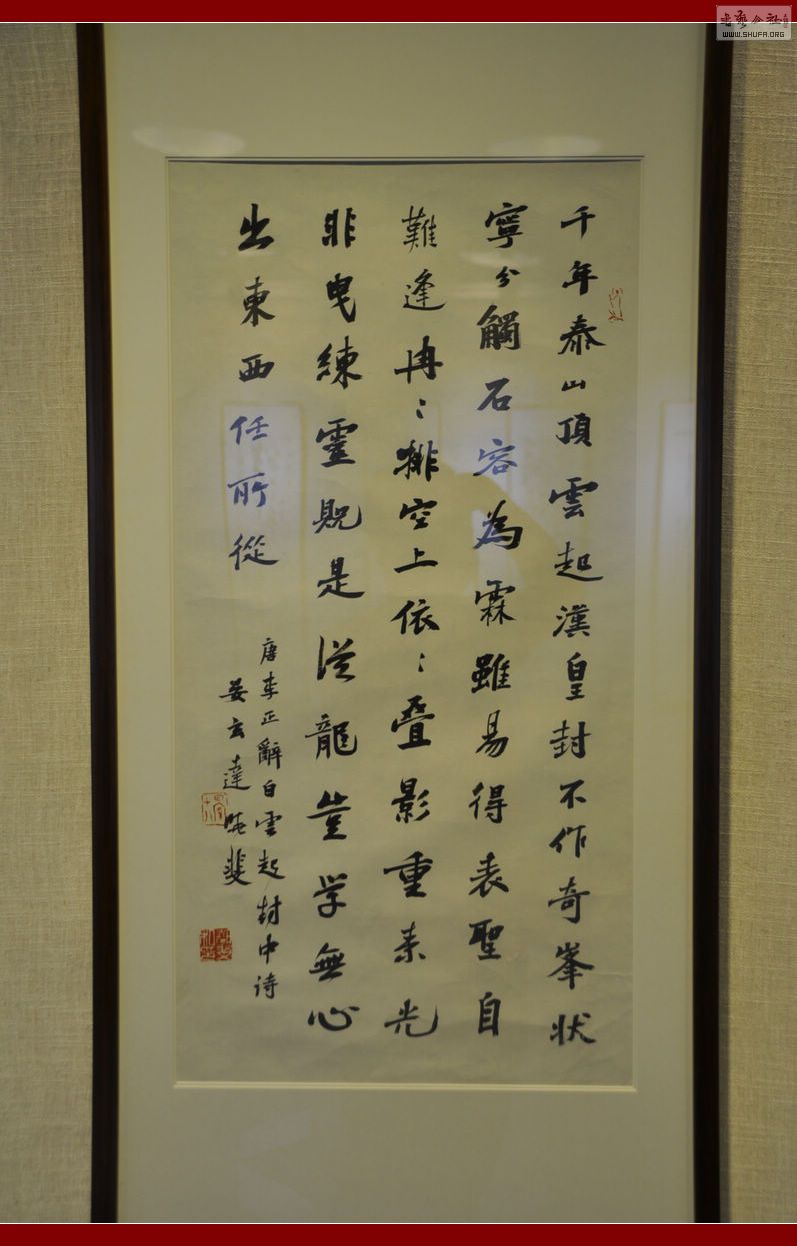 千年泰山頂雲起漢皇封不作奇峯狀
寧分觸石容為霖雖易得表聖自
難逢冉〻排空上依〻疊影重素光
非曳練靈貺是從龍豈学無心
出東西任所從
唐李正辭白雲起封中诗
姜玄達
WWW.SHUFA.ORG